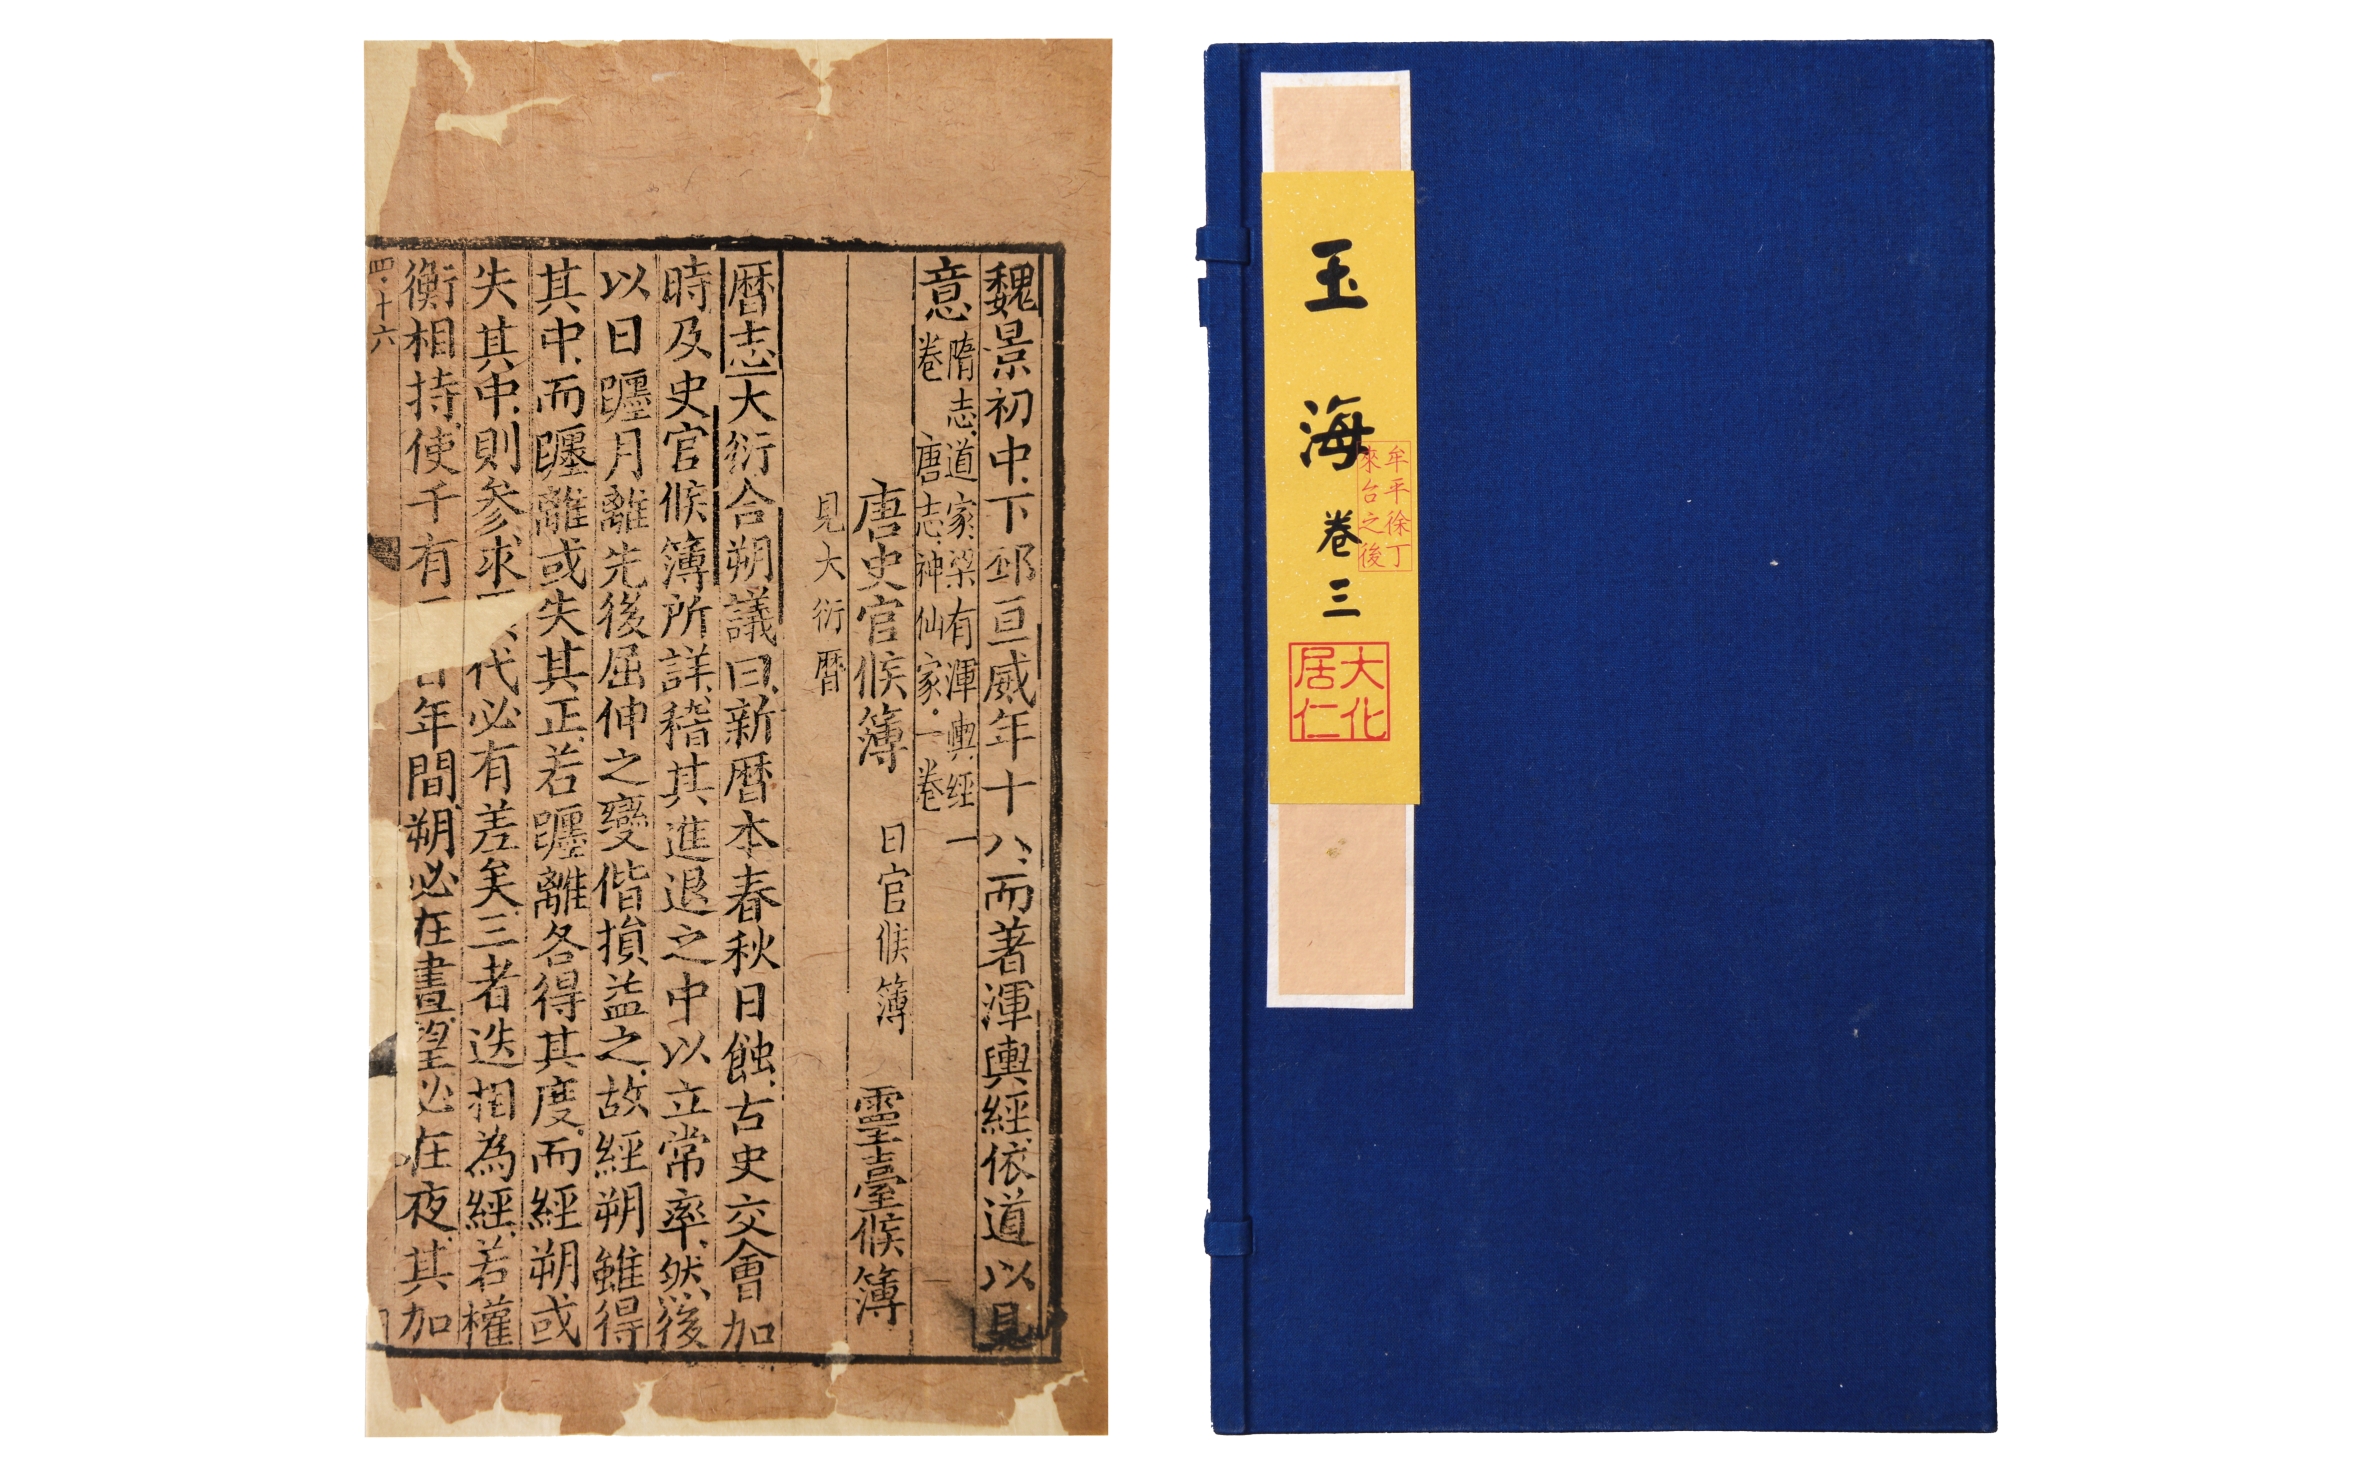 魏景初中下邳亘威年十八而著渾輿經依道以見
意
隋志道家梁有渾輿經一
卷 唐志神仙家一卷
唐史官候簿 日官候簿 靈臺候簿
見大衍暦
暦志大衍合朔議曰新暦本春秋日蝕古史交會加
時及史官候簿所詳稽其進退之中以立常率然後
以日躔月離先後屈伸之變偕損益之故經朔雖得
其中而躔離或失其正若躔離各得其度而經朔或
失其中則参求代必有差矣三者迭相為經若權
衡相持使千有年間朔必在晝望必在夜其加
四十六
玉海卷三
牟平徐丁
來台之後
大化
居仁